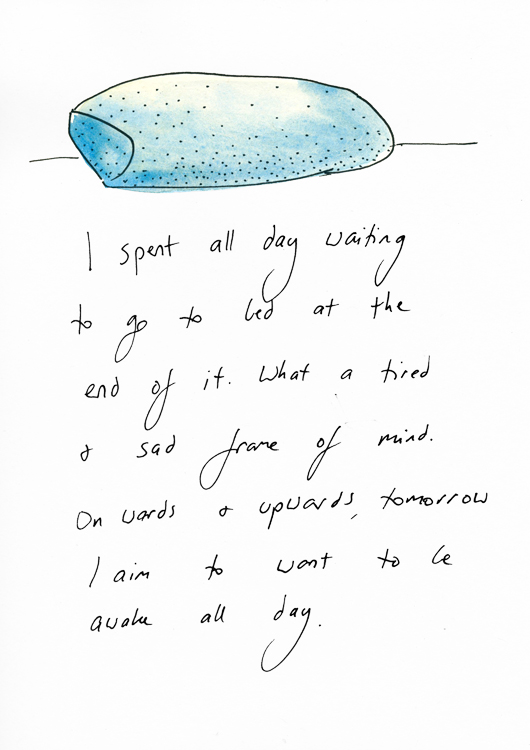 I spent all day waiting
to go to bed at the
end of it. What a tired
& sad frame of mind.
Onwards & upwards, tomorrow
I aim to want to be
awake all day.